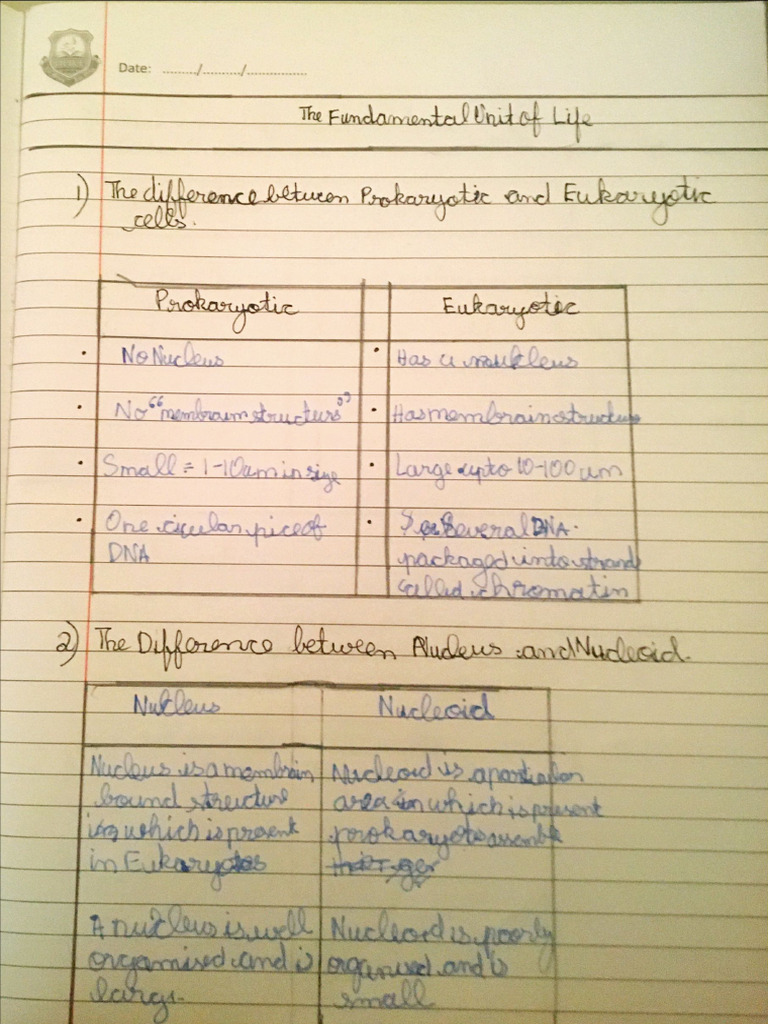 Date: ......../......../...............
The Fundamental Unit of Life
1) The difference between Prokaryotic and Eukaryotic
cells.
Prokaryotic Eukaryotic
• No Nucleus • Has a nucleus
• No "membrain structure" • Has membrain structure
• Small = 1-10um in size • Large upto 10-100 um
• One cicular pice of • Several DNA
DNA packaged into strand
called chromatin
2) The Difference between Nucleus and Nucleoid.
Nucleus Nucleoid
Nucleus is a membrain Nucleoid is a
bound structure area in which is present
in which is present prokaryote
in Eukaryotes
A nucleus is well Nucleoid is poorly
organised and is organised and is
large. small